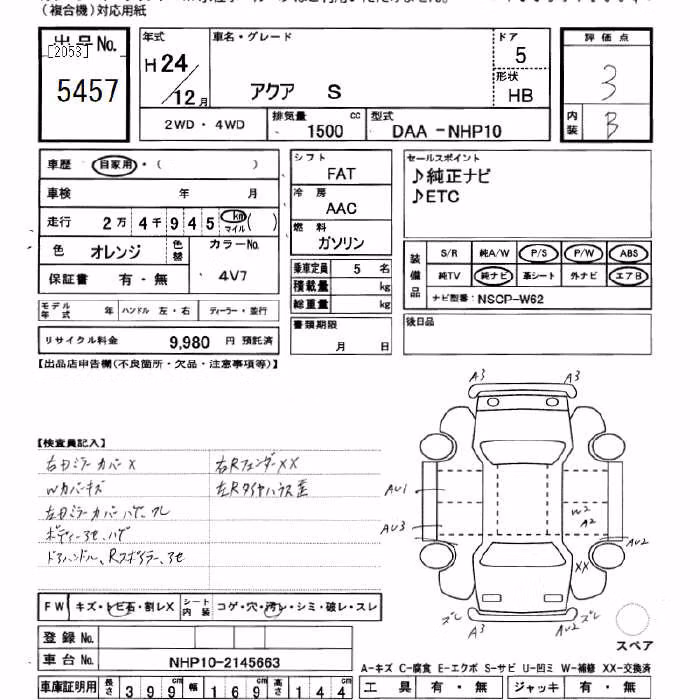 (複合機)対応用紙
出品No.
[2053]
5457
年式
H24/12月
車名・グレード
アクア S
ドア
5
形状
HB
評価点
3
内装
B
2WD・4WD
排気量
1500 cc
型式
DAA -NHP10
車歴 自家用・( )
車検 年 月
走行 2万4千945 km マイル( )
色 オレンジ
色替
カラーNo.
4V7
保証書 有・無
シフト
FAT
冷房
AAC
燃料
ガソリン
乗車定員 5 名
積載量 kg
総重量 kg
書類期限
月 日
セールスポイント
♪純正ナビ
♪ETC
装備品
S/R 純A/W P/S P/W ABS
純TV 純ナビ 革シート 外ナビ エアB
ナビ型番: NSCP-W62
後日品
モデル年式 年 ハンドル 左・右 ディーラー・並行
リサイクル料金 9,980 円 預託済
【出品店申告欄(不良箇所・欠品・注意事項等)】
【検査員記入】
右ドミラーカバーX
Wカバーキズ
ボディー
右RフェンダーXX
A3 A3
AU1
AU3
W2
A2
AU2
XX
ズレ
A3
AU2
ズレ
スペア
FW キズ・トビ石・割レX
シート内装 コゲ・穴・汚レ・シミ・破レ・スレ
登録No.
車台No. NHP10-2145663
A-キズ C-腐食 E-エクボ S-サビ U-凹ミ W-補修 XX-交換済
車庫証明用 長さ 399cm 幅 169cm 高さ 144cm
工具 有・無 ジャッキ 有・無